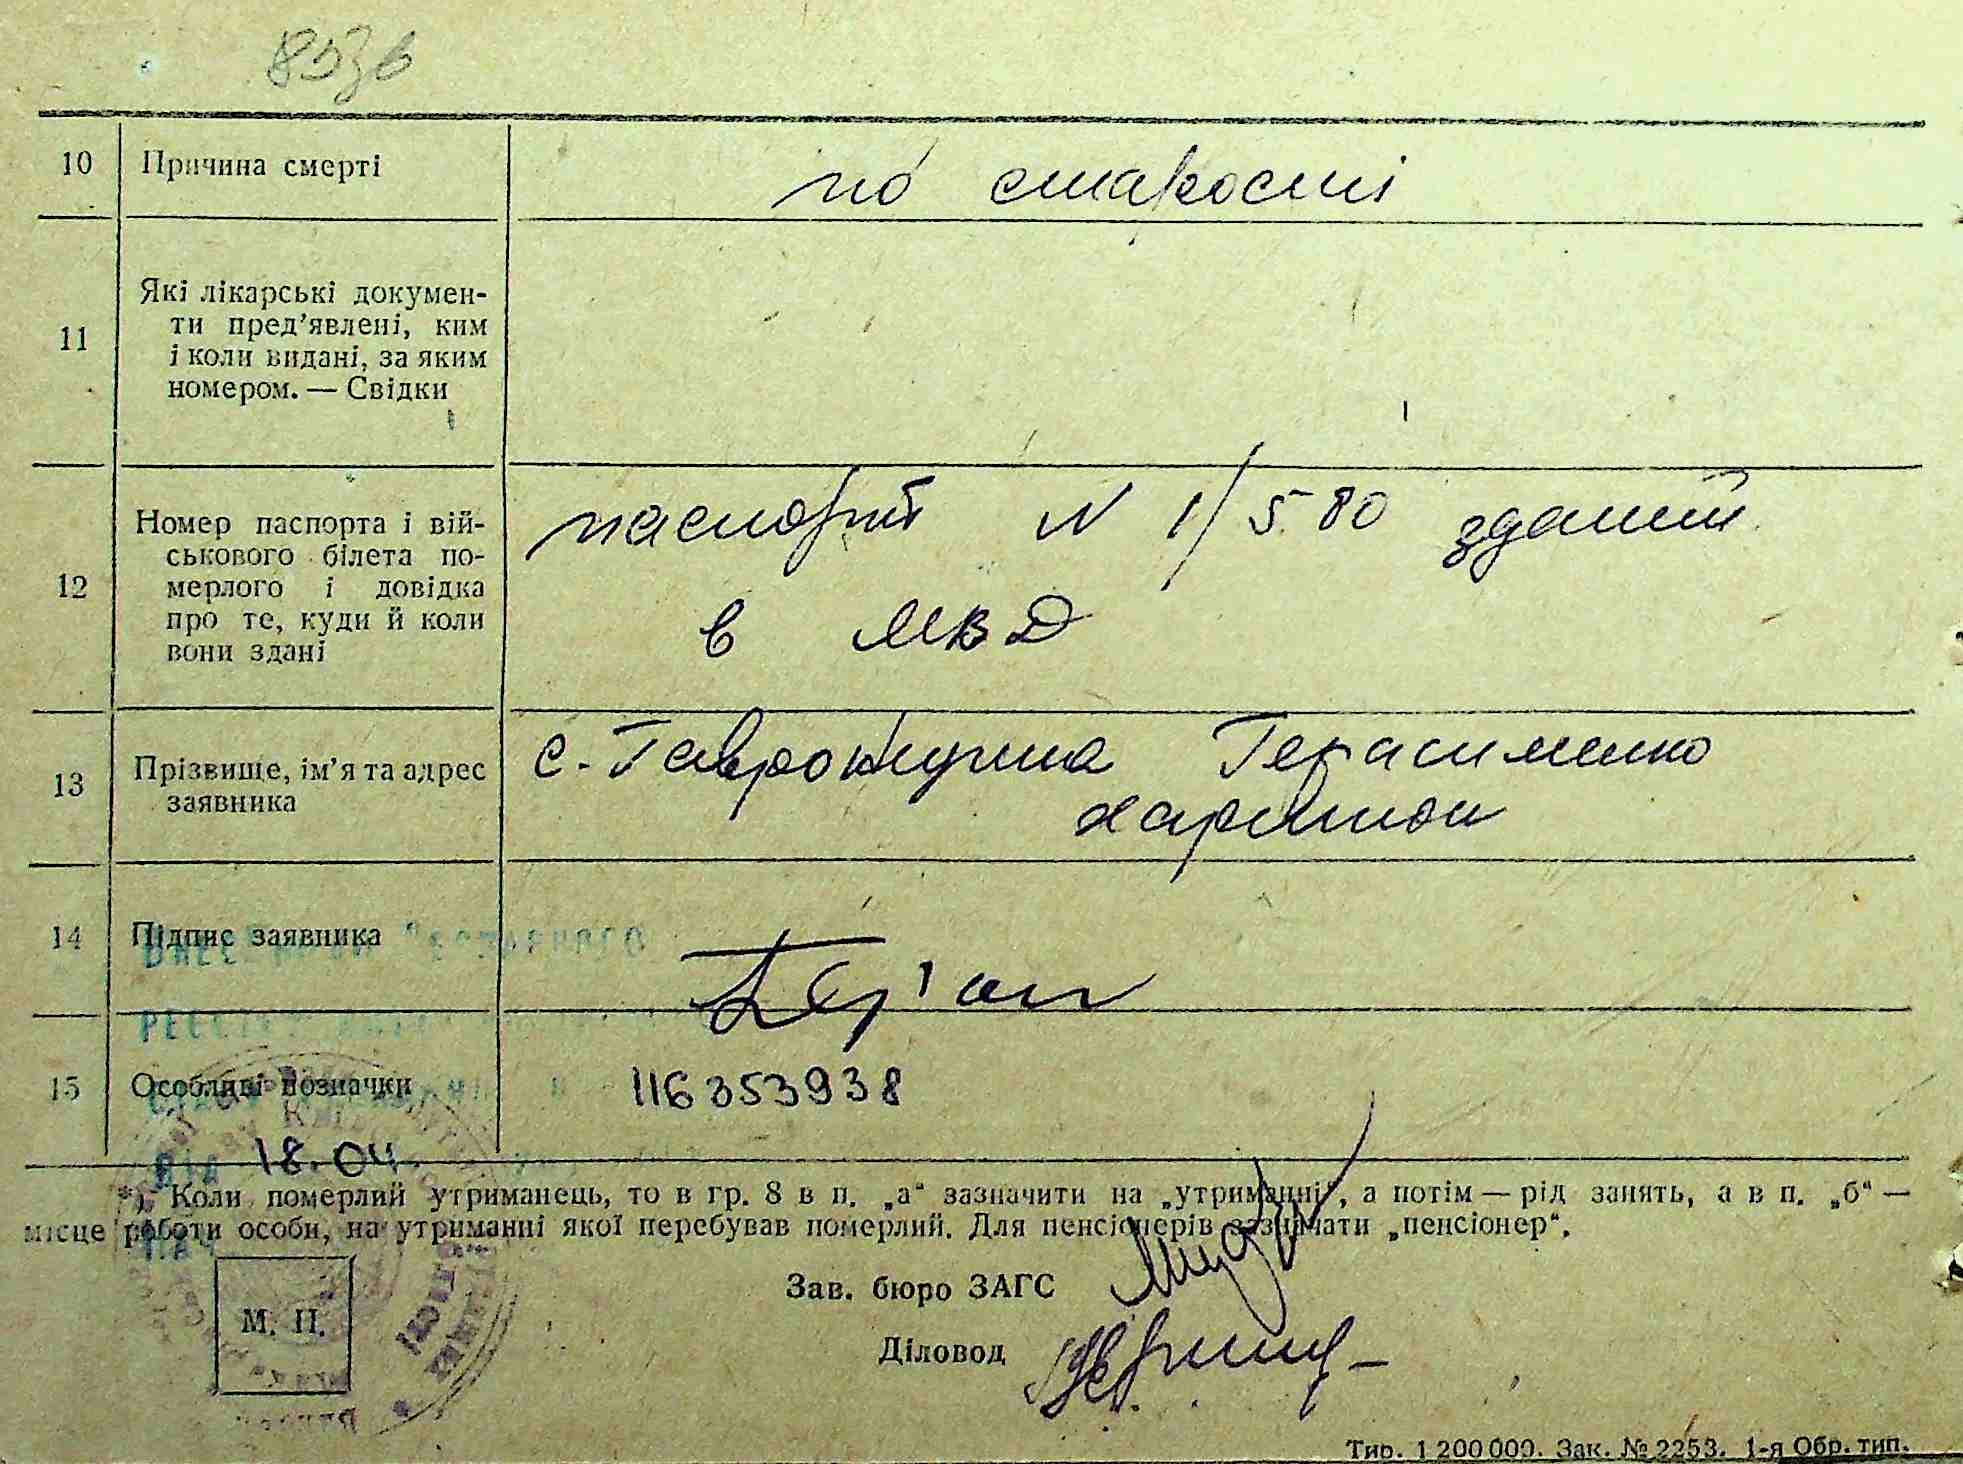 853в
10 Причина смерті по старості
11 Які лікарські докумен-
ти пред’явлені, ким
і коли видані, за яким
номером. — Свідки
12 Номер паспорта і вій-
ськового білета по-
мерлого і довідка
про те, куди й коли
вони здані
паспорт N 1/580 зданий
в МВД
13 Прізвище, ім’я та адрес
заявника
с. Гавронщина Герасименко
харитон
14 Підпис заявника
15 Особливі позначки 116353938
18.04.
*) Коли померлий утриманець, то в гр. 8 в п. „а“ зазначити на „утриманні“, а потім — рід занять, а в п. „б“ —
місце роботи особи, на утриманні якої перебував померлий. Для пенсіонерів зазначати „пенсіонер“.
Зав. бюро ЗАГС
М. П.
Діловод
Тир. 1 200 000. Зак. № 2253. 1-я Обр. тип.